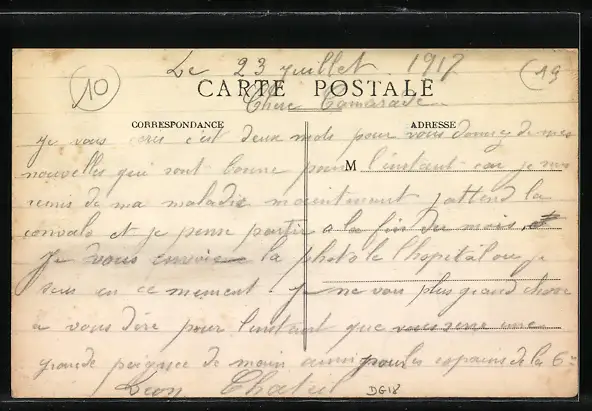 10
Le 23 juillet 1917
(19
CARTE POSTALE
Chere Camarade
CORRESPONDANCE
ADRESSE
Je vous cris c'est deux mots pour vous donnez de mes
nouvelles qui sont bonne pour l'instant car je me
M
remis de ma maladie maintenant j attend la
convalo et je pense partir a la fin du mois.
Je vous envoie la photo de l hopital ou je
suis en ce moment je ne vois plus grand chose
a vous dire pour l'instant que vous serre une
grande poignee de main ainsi pour les copains de la 6
Leon
DG18